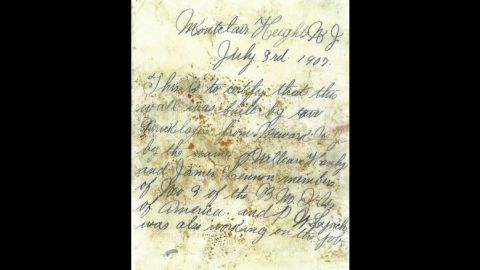 Montclair Heights N.J.
July 3rd 1907.
This is to certify that the
wall was built by two
Bricklayers from Newark N.J.
by the names of William Hanly
and James Lennon members
of No 3 of the B.M.
of America. and P
was also working on the job